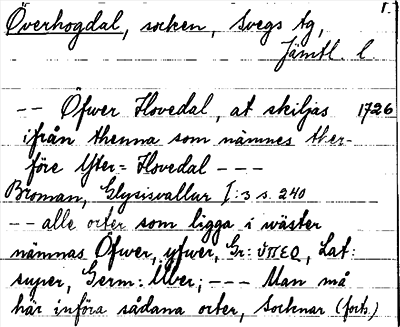 Överhogdal, socken, Svegs tg, 1.
Jämtl. l.
-- Öfwer Hovedal, at skiljas 1726
ifrån thenna som nämnes ther-
före Ytter= Hovedal ---
Broman, Glysisvallur I:3 s. 240
-- alle orter som ligga i wäster
nämnas Öfwer, yfwer, Gr: ὑπεϱ, Lat:
super, Germ: Über; --- Man må
här införa sådana orter, Socknar (forts.)